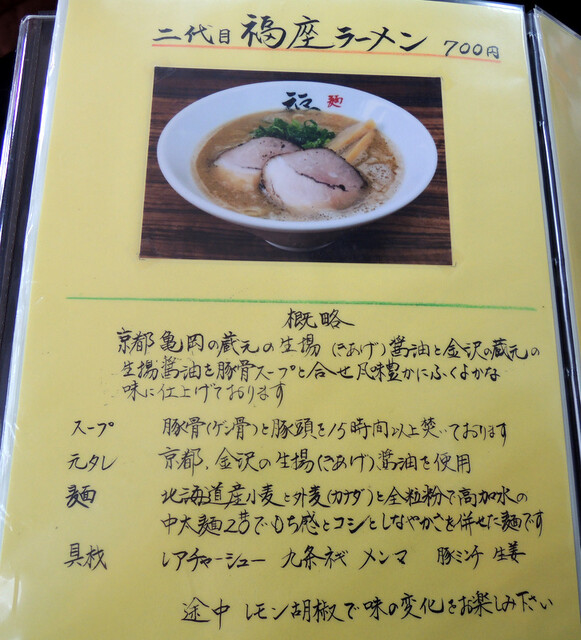 二代目 福座ラーメン 700円
福 麺
概略
京都亀岡の蔵元の生揚(きあげ)醤油と金沢の蔵元の
生揚醤油を豚骨スープと合せ風味豊かにふくよかな
味に仕上げております
スープ 豚骨(ゲン骨)と豚頭を15時間以上焚いております
元タレ 京都,金沢の生揚(きあげ)醤油を使用
麺 北海道産小麦と外麦(カナダ)と全粒粉で高加水の
中太麺2
でもち感とコシとしなやかさを併せた麺です
具材 レアチャーシュー 九条ネギ メンマ 豚ミンチ 生姜
途中 レモン胡椒で味の変化をお楽しみ下さい